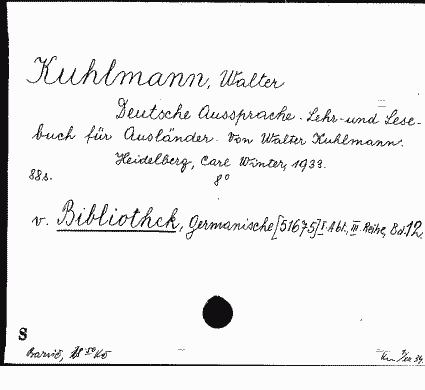 Kuhlmann, Walter
Deutsche Aussprache. Lehr- und Lese-
buch für Ausländer. Von Walter Kuhlmann.
Heidelberg, Carl Winter, 1933.
88s. 8°
v. Bibliothek, Germanische [51675] I. Abt., III. Reihe, Bd. 12.
S